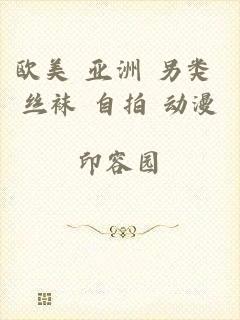 欧美 亚洲 另类
丝袜 自拍 动漫
印容园